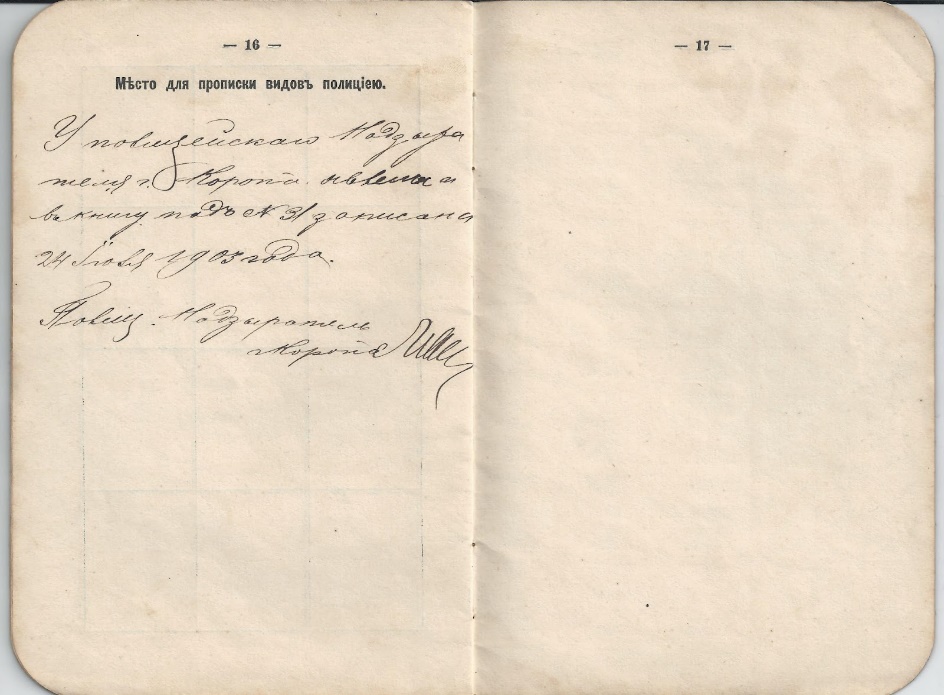 — 16 —
Мѣсто для прописки видовъ полиціею.
У полицейскаго Надзира
теля г. Коропа явлена и
въ книгу подъ № 31 записана
24 Іюля 1903 года.
Полиц. Надзиратель
г. Коропа
— 17 —